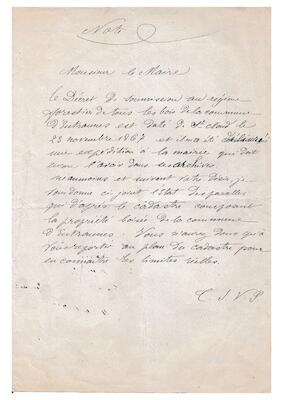 Note
Monsieur le Maire
Le Décret de soumission au régime
forestier de tous les bois de la commune
d'Entraunes est daté de St Cloud le
23 novembre 1862 et il m'a été délivré
une expédition à la mairie qui doit
l'avoir dans les archives
néanmoins et suivant votre désir, je
vous donne ci joint l'état des parcelles
qui d'après le cadastre composent
la propriété boisée de la commune
d'Entraunes. Vous n'aurez donc qu'à
vous reporter au plan du cadastre pour
en connaître les limites réelles.
T. S. V. P